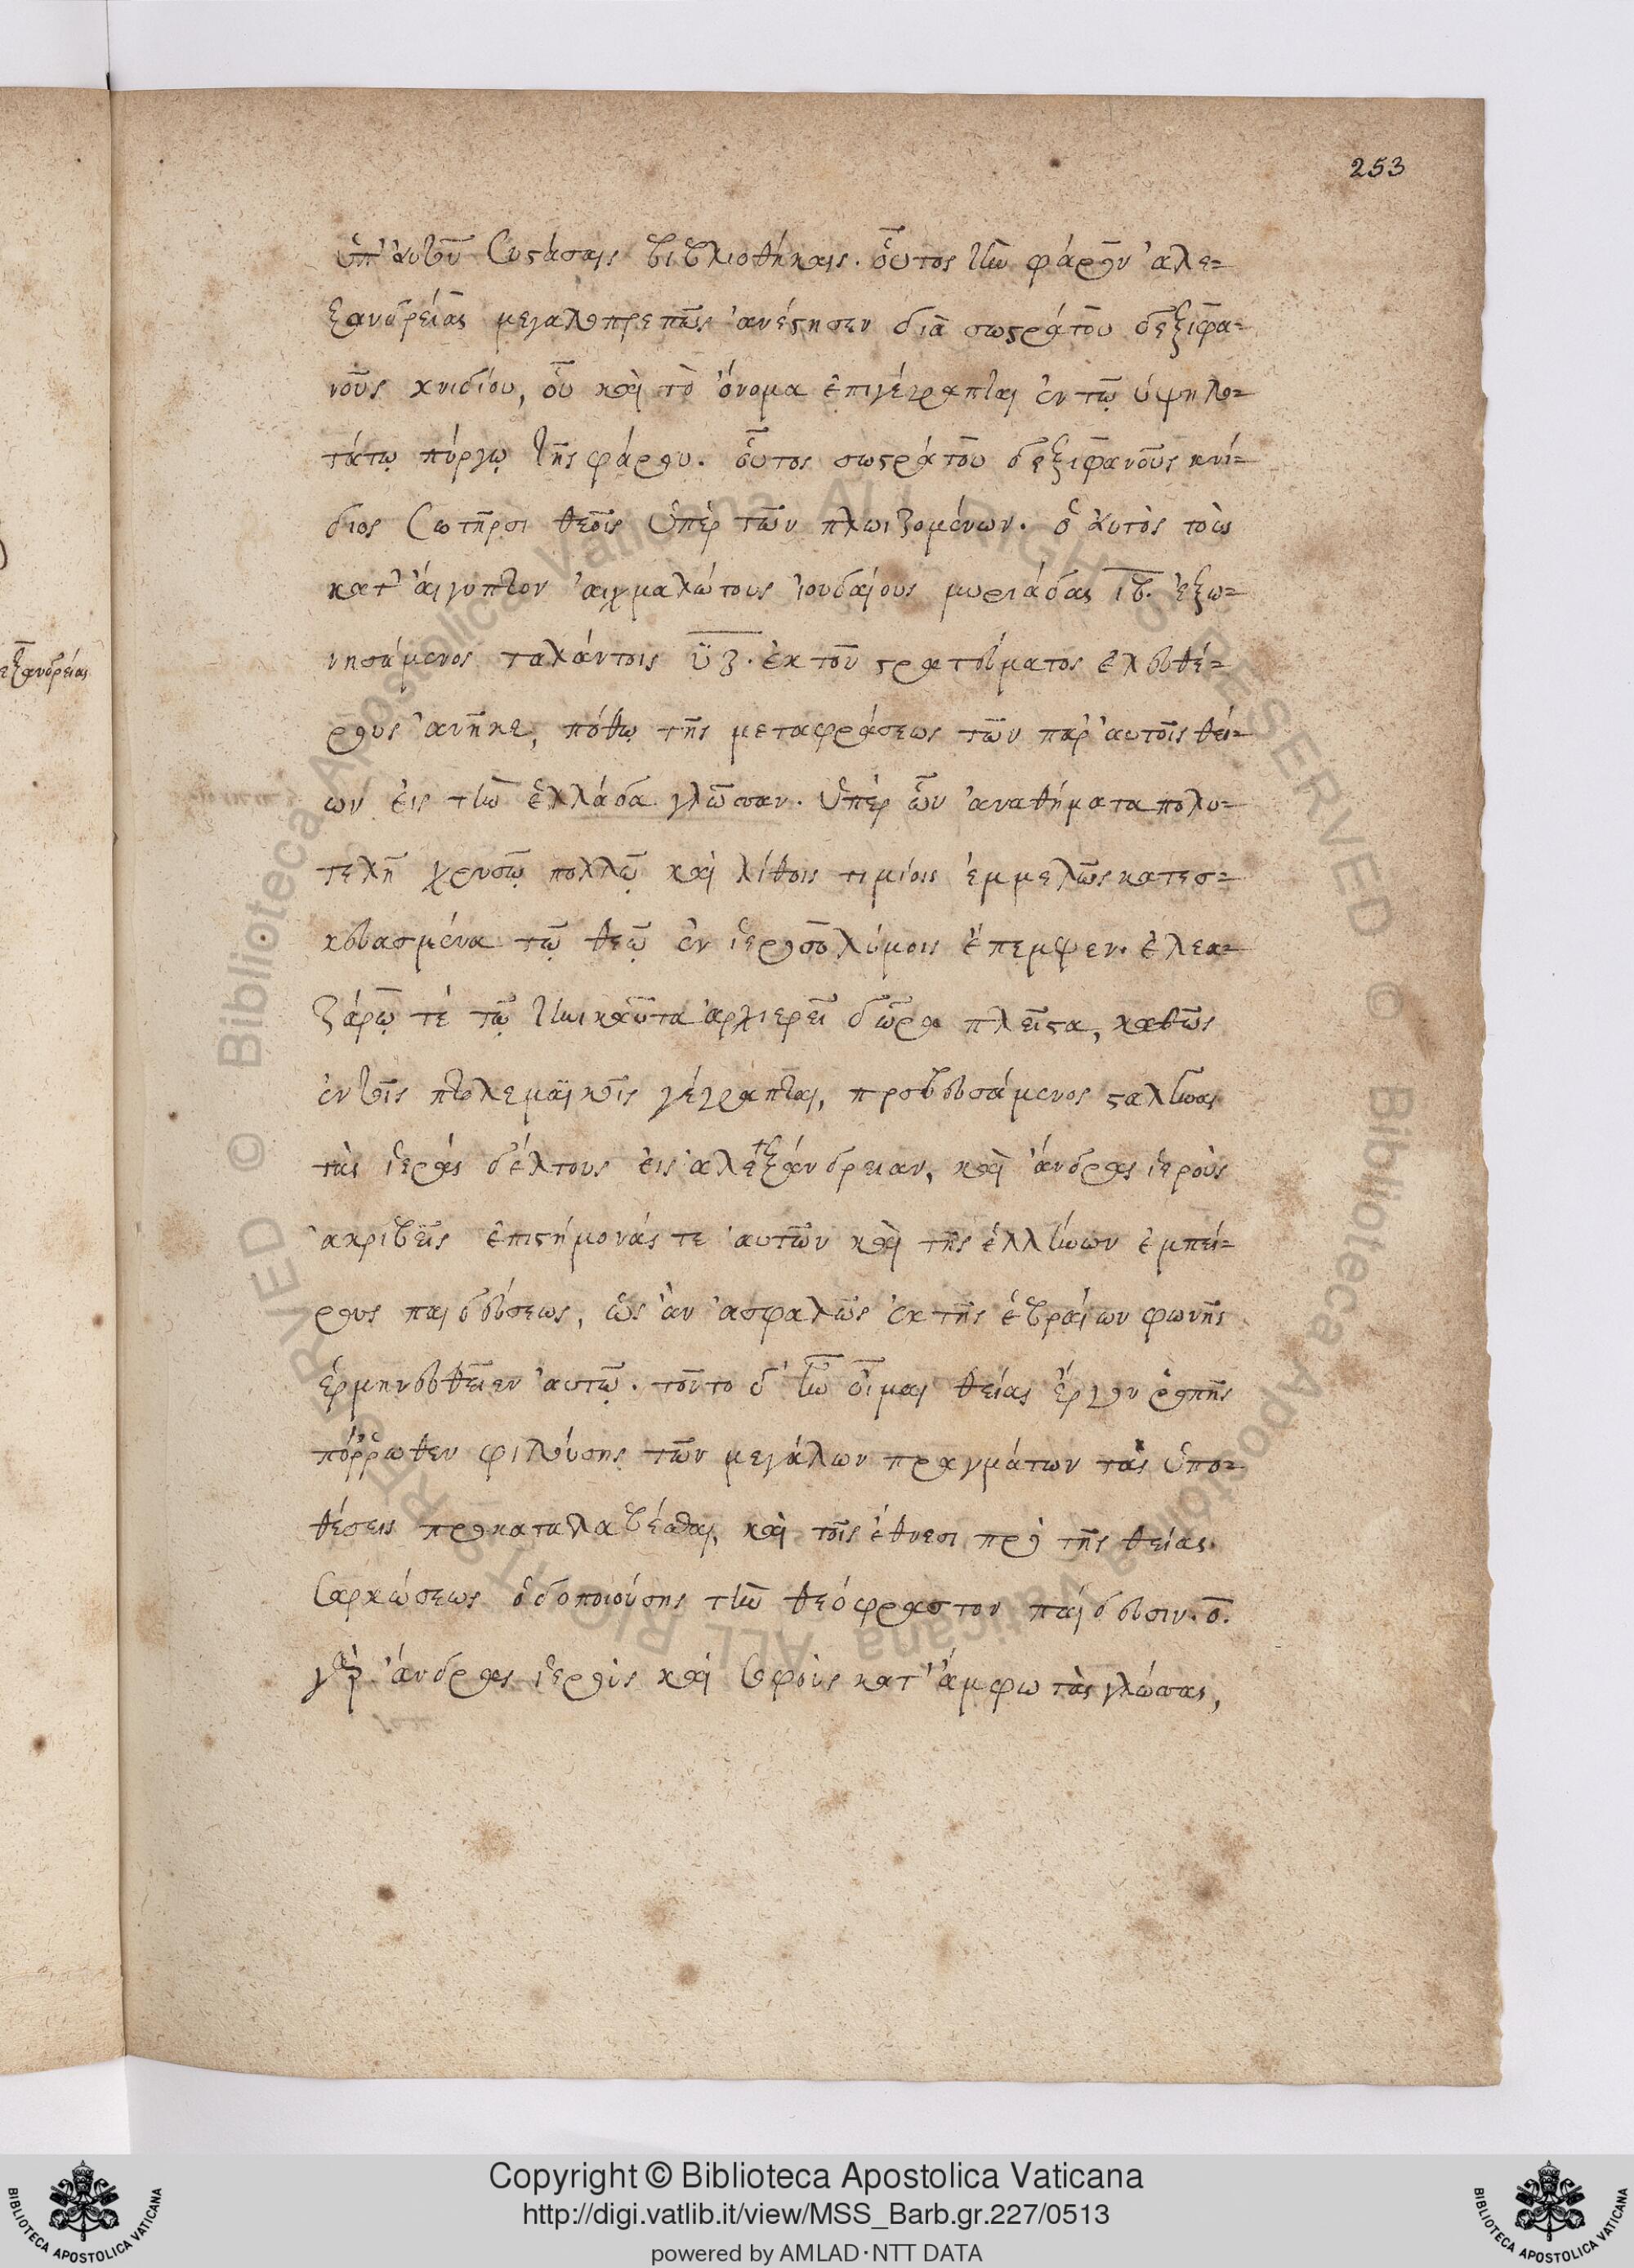 253
ὑπ' αὐτοῦ συστάσαις βιβλιοθήκαις. οὗτος τὴν φάρον ἀλε-
ξανδρείας μεγαλοπρεπῶς ἀνέστησεν διὰ σωστράτου δεξιφα-
νοῦς κνιδίου, οὗ καὶ τὸ ὄνομα ἐπιγέγραπται ἐν τῷ ὑψηλο-
τάτῳ πύργῳ τῆς φάρου. οὗτος σωστράτου δεξιφανοῦς κνί-
διος σωτῆρσι θεοῖς ὑπὲρ τῶν πλωιζομένων. ὁ αὐτὸς τοὺς
κατ' αἴγυπτον αἰχμαλώτους ἰουδαίους μυριάδας ιβ. ἐξω-
νησάμενος ταλάντοις υξ. ἐκ τοῦ στρατεύματος ἐλευθέ-
ρους ἀνῆκε, πόθῳ τῆς μεταφράσεως τῶν παρ' αὐτοῖς θεί-
ων εἰς τὴν ἑλλάδα γλῶσσαν. ὑπὲρ ὧν ἀναθήματα πολυ-
τελῆ χρυσῷ πολλῷ καὶ λίθοις τιμίοις ἐμμελῶς κατεσ-
κευασμένα τῷ θεῷ ἐν ἱεροσολύμοις ἔπεμψεν. ἐλεα-
ζάρῳ τέ τῷ τηνικαῦτα ἀρχιερεῖ δῶρα πλεῖστα, καθὼς
ἐν τοῖς πτολεμαϊκοῖς γέγραπται, πρεσβευσάμενος σταλῆναι
τὰς ἱερὰς δέλτους εἰς ἀλεξάνδρειαν, καὶ ἄνδρας ἱεροὺς
ἀκριβεῖς ἐπιστήμονάς τε αὐτῶν καὶ τῆς ἑλλήνων ἐμπεί-
ρους παιδεύσεως, ὡς ἂν ἀσφαλῶς ἐκ τῆς ἑβραίων φωνῆς
ἑρμηνευθεῖεν αὐτῷ. τοῦτο δ' ἦν οἶμαι θείας ἔργον ῥοπῆς
πόῤῥωθεν φιλούσης τῶν μεγάλων πραγμάτων τὰς ὑπο-
θέσεις προκαταλαβέσθαι, καὶ τοῖς ἔθνεσι πρὸ τῆς θείας
σαρκώσεως ὁδοποιούσης τὴν θεόφραστον παίδευσιν. ο.
γὰρ ἄνδρας ἱεροὺς καὶ σοφοὺς κατ' ἄμφω τὰς γλώσσας,
Copyright © Biblioteca Apostolica Vaticana
http://digi.vatlib.it/view/MSS_Barb.gr.227/0513
powered by AMLAD·NTT DATA
BIBLIOTECA APOSTOLICA VATICANA
BIBLIOTECA APOSTOLICA VATICANA